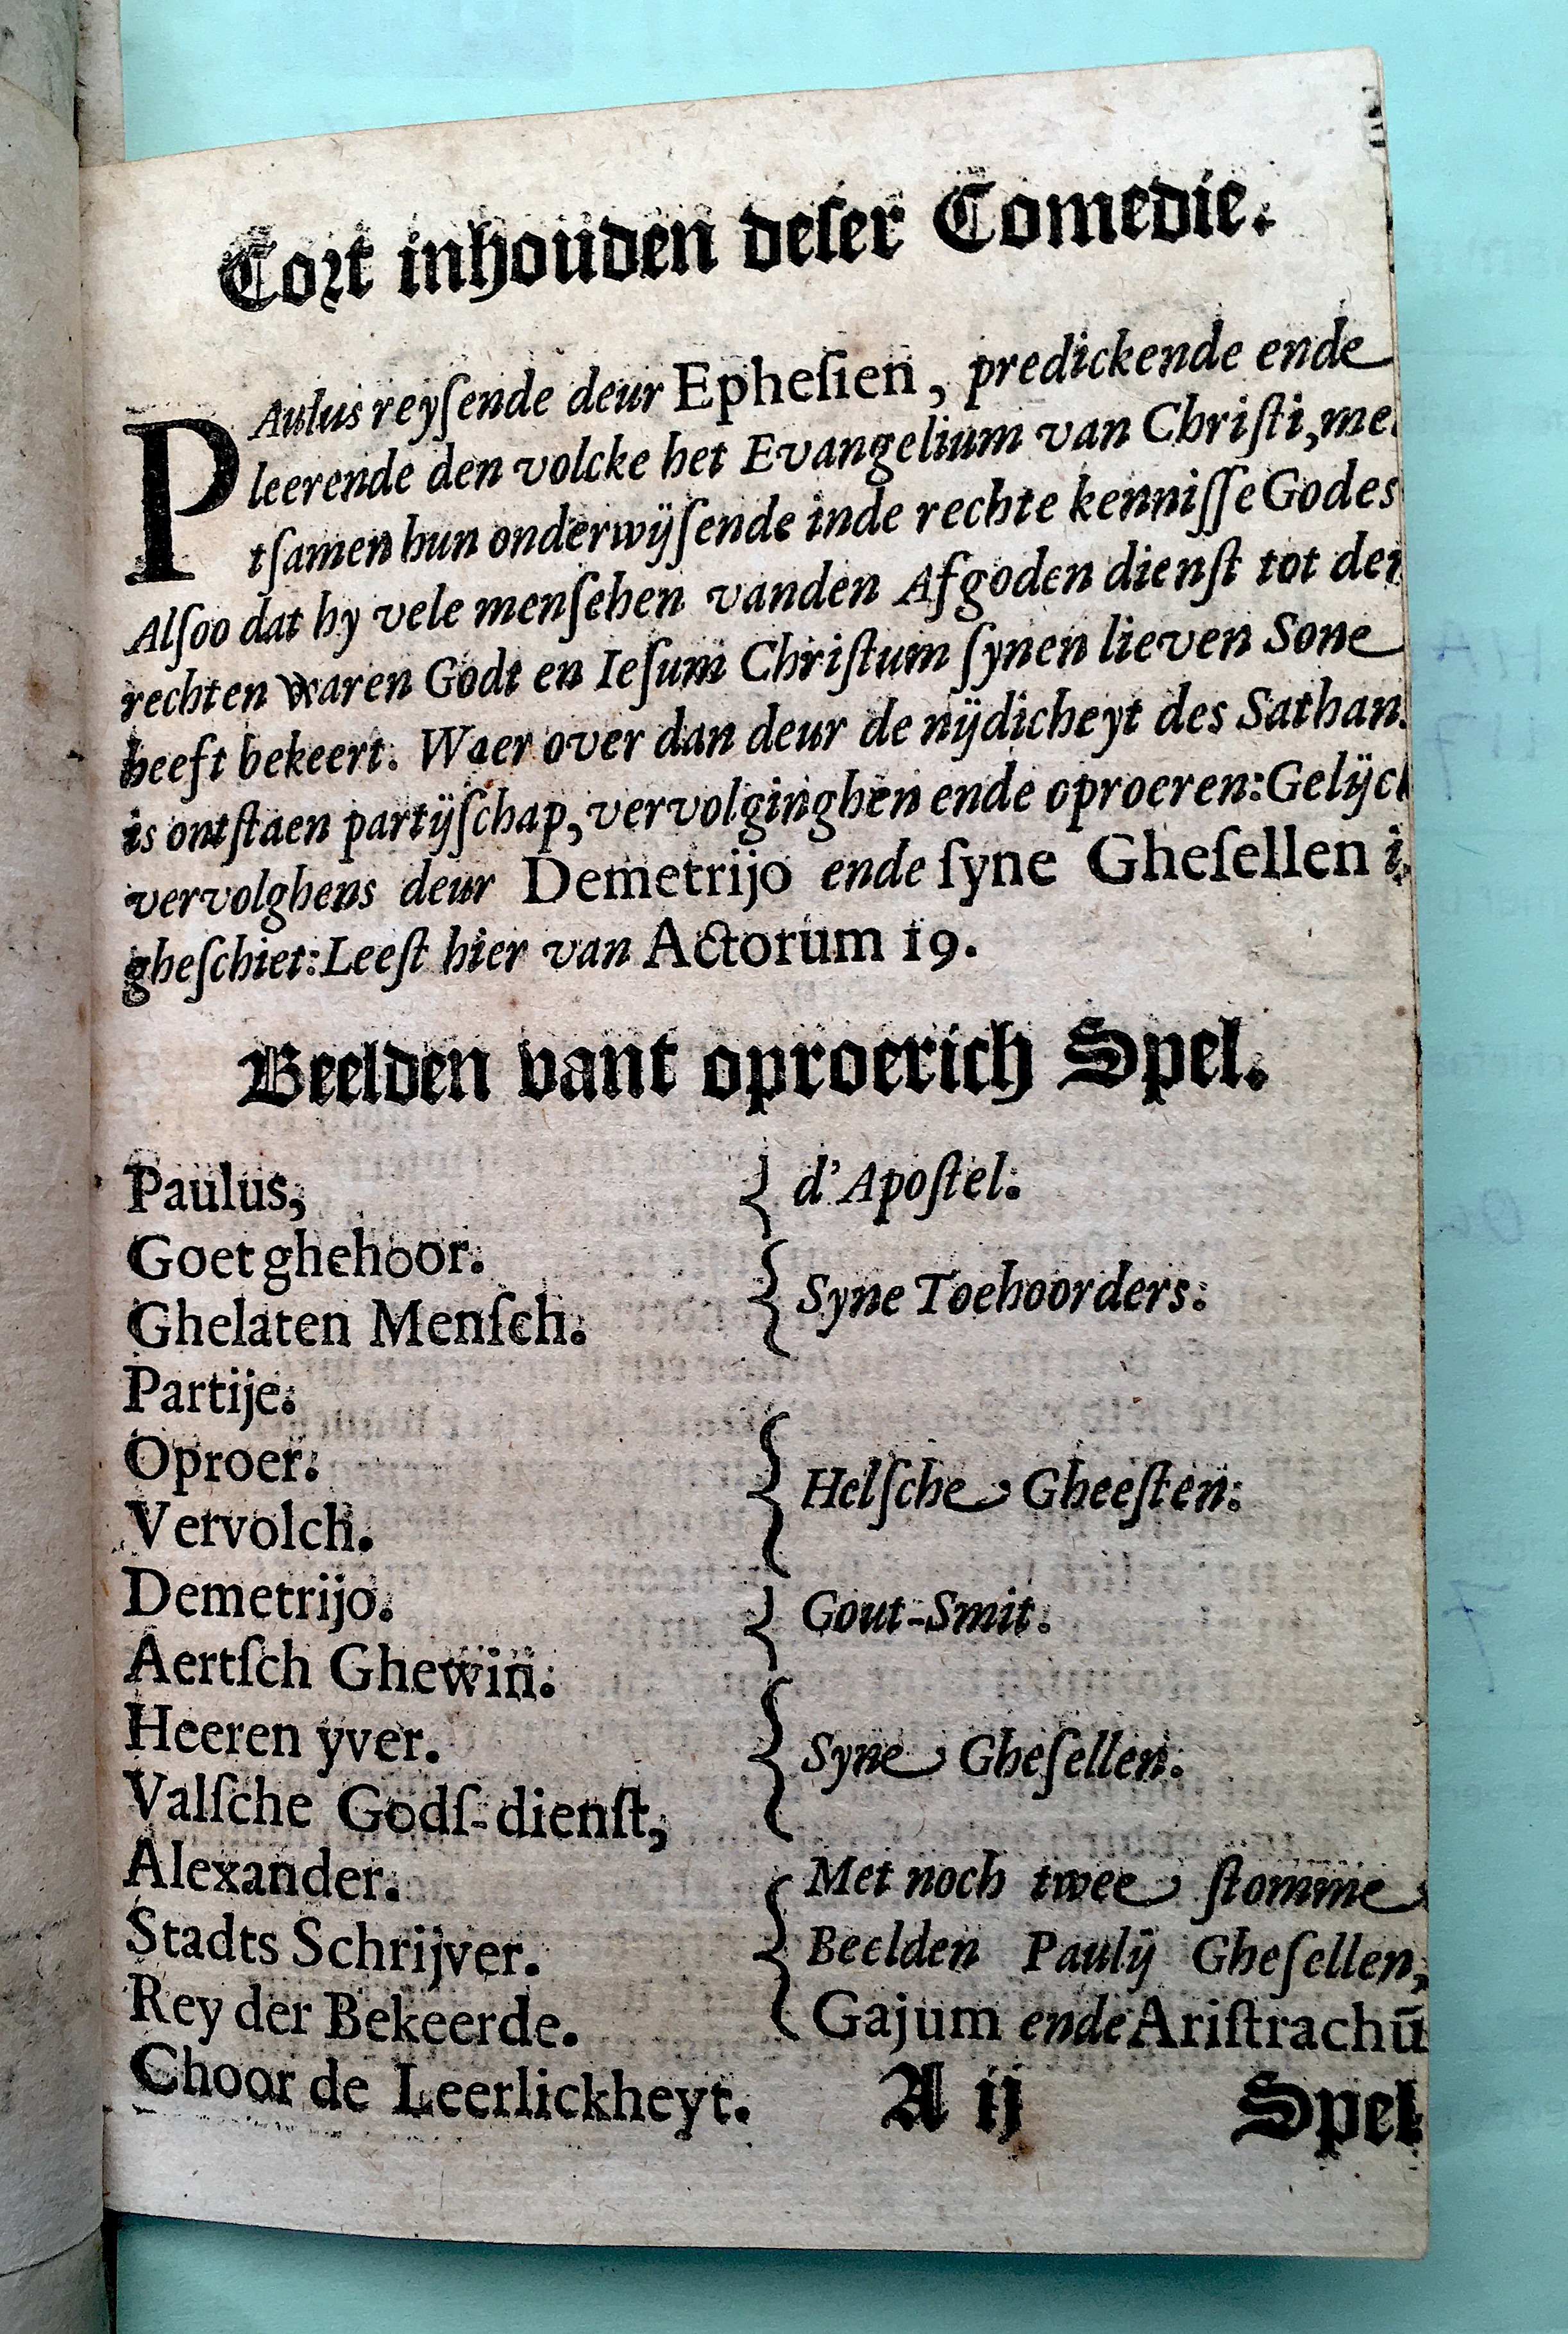 Cort inhouden deser Comedie.
PAulus reyſende deur Epheſien, predickende ende
leerende den volcke het Evangelium van Chriſti, me
tſamen hun onderwijſende inde rechte kenniſſe Godes
Alſoo dat hy vele menſehen vanden Afgoden dienſt tot den
rechten waren Godt en Ieſum Chriſtum ſynen lieven Sone
heeft bekeert. Waer over dan deur de nijdicheyt des Sathan.
is ontſtaen partijſchap, vervolginghen ende oproeren: Gelijck
vervolghens deur Demetrijo ende ſyne Gheſellen i
gheſchiet: Leeſt hier van Actorum 19.
Beelden vant oproerich Spel.
Paulus, { d'Apoſtel.
Goet ghehoor.
Ghelaten Menſch. { Syne Toehoorders.
Partije.
Oproer. { Helſche Gheeſten.
Vervolch.
Demetrijo. { Gout-Smit.
Aertſch Ghewin.
Heeren yver. { Syne Gheſellen.
Valſche Godſ-dienſt,
Alexander. { Met noch twee ſtomme
Stadts Schrijver. Beelden Paulij Gheſellen,
Rey der Bekeerde. Gajum ende Ariſtrachū
Choor de Leerlickheyt. A ij Spel